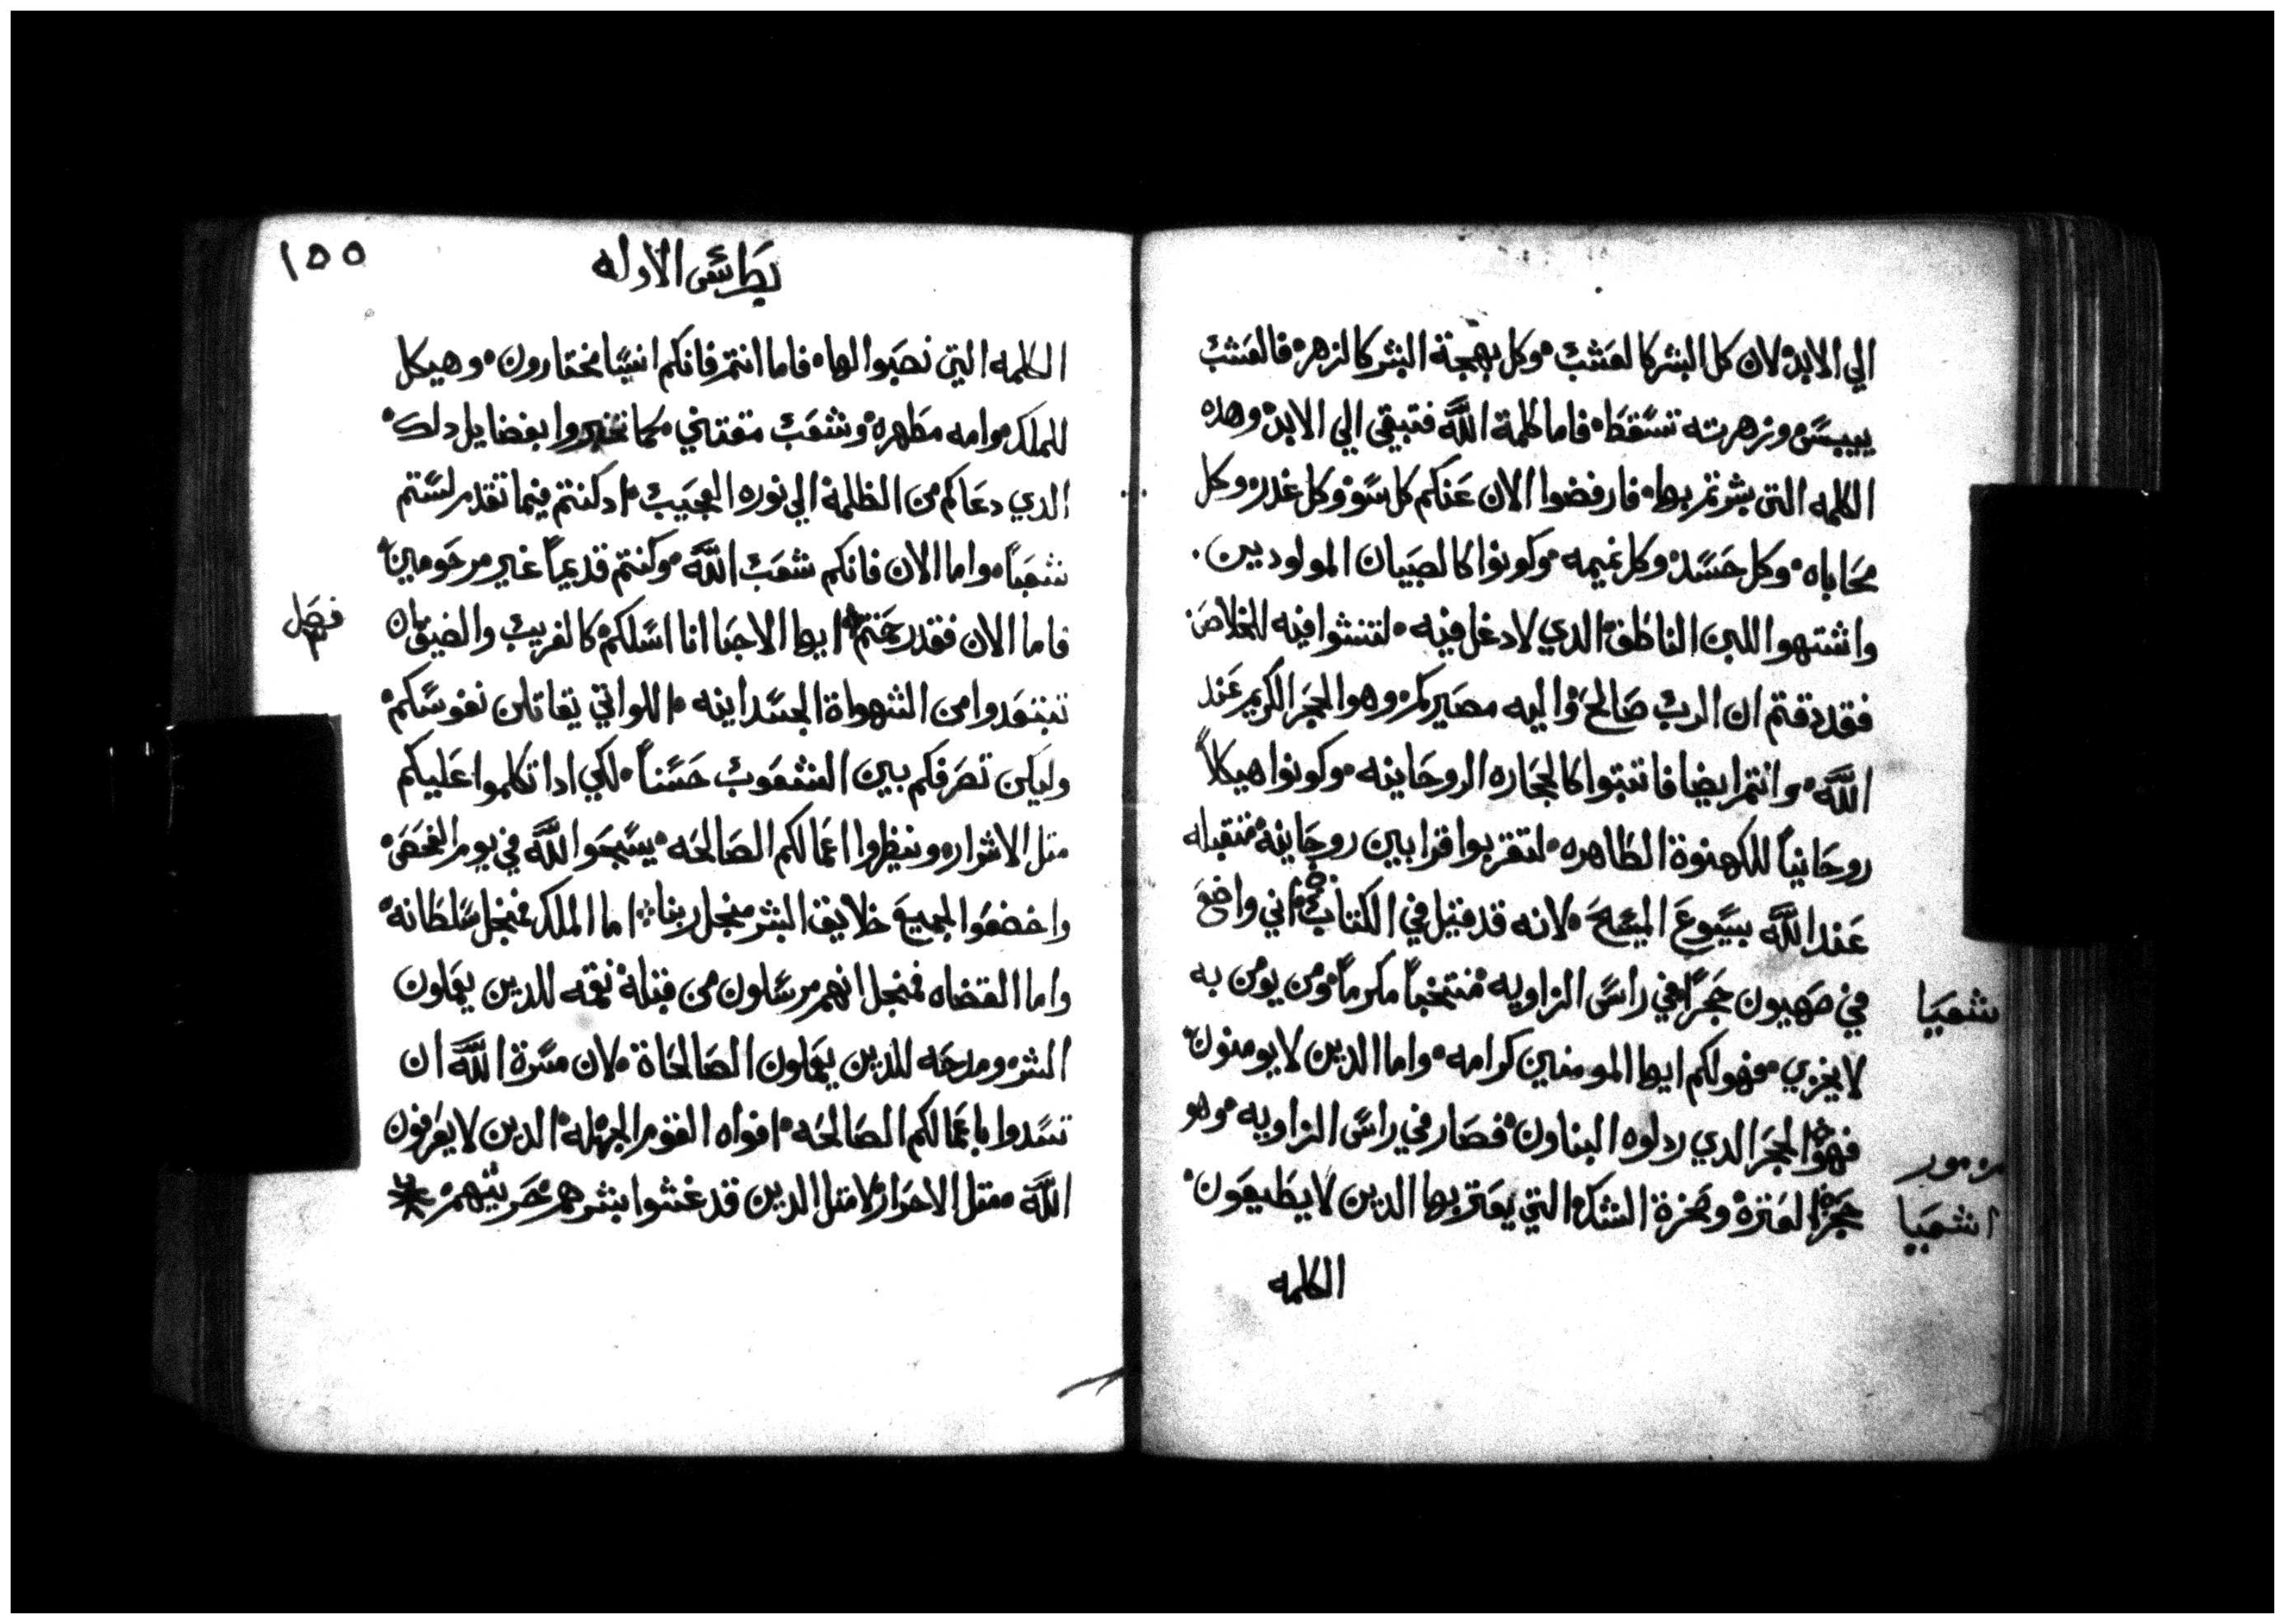 الي الابد لان كل البشر كالعشب وكل بهجة البشر كالزهر فالعشب
ييبس وزهرته تسقط فاما كلمة الله فتبقي الي الابد وهده
الكلمه التي بشرتم بها فارفضوا الان عنكم كل سوو وكل غدر وكل
محاباه وكل حسد وكل نميمه وكونوا كالصبيان المولوديين
واشتهوا اللبن الناطق الدي لا دغل فيه لتنشوا فيه للخلاص
فقد دقتم ان الرب صالح واليه مصيركم وهو الحجر الكريم عند
الله وانتم ايضا فاتبتوا كالحجاره الروحانيه وكونوا هيكلاً
روحانياً للكهنوة الطاهره لتقربوا قرابين روحانية متقبله
عند الله بيسوع المسيح لانه قد قيل في الكتاب اني واضع
في صهيون حجراً في راس الزاويه منتخباً مكرماً ومن يومن به
لا يخزي فهو لكم ايها المومنين كرامه واما الدين لا يومنون
فهو الحجر الدي ردلوه البناون فصار في راس الزاويه وهو
حجر العترة وصخرة الشك التي يعتر بها الدين لا يطيعون
الكلمه
شعيا
مزمور
اشعيا
١٥٥
بطرس الاوله
الكلمه التي نصبوا لها فاما انتم فانكم انسبا مختارون وهيكل
للملك وامه مطهره وشعب مقتني كما تخبروا بفضايل دلك
الدي دعاكم من الظلمة الي نوره العجيب اد كنتم فيما تقدم لستم
شعباً واما الان فانكم شعب الله وكنتم قديماً غير مرحومين
فاما الان فقد رحمتم ايها الاحبا انا اسلكم كالغريب والضيق بان
تبتعدوا من الشهواة الجسدانيه اللواتي يقاتلن نفوسكم
وليكن تصرفكم بين الشعوب حسناً لكي ادا تكلموا عليكم
متل الاشرار وينظروا اعمالكم الصالحه يسبحوا الله في يوم الفحص
واخضعوا لجميع خلايق البشر منجل ربنا اما الملك فمنجل سلطانه
واما القضاه فمنجل انهم مرسلون من قبله نقمه للدين يعملون
الشر ومدحه للدين يعملون الصالحاة لان مسرة الله ان
تسدوا باعمالكم الصالحه افواه القوم الجهله الدين لا يعرفون
الله متل الاحرار لا متل الدين قد غشوا بشرهم حريتهم
فصل
٣